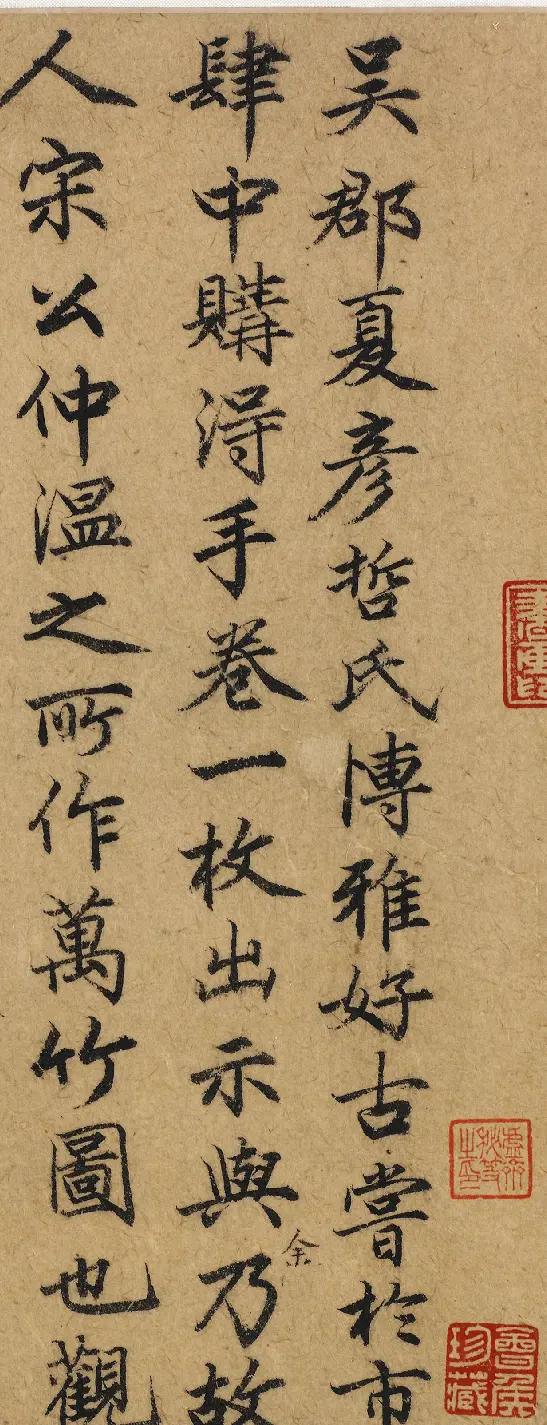 吳郡夏彥哲氏博雅好古嘗於市
肆中購得手卷一枚出示與余乃故
人宋公仲溫之所作萬竹圖也觀
珍藏